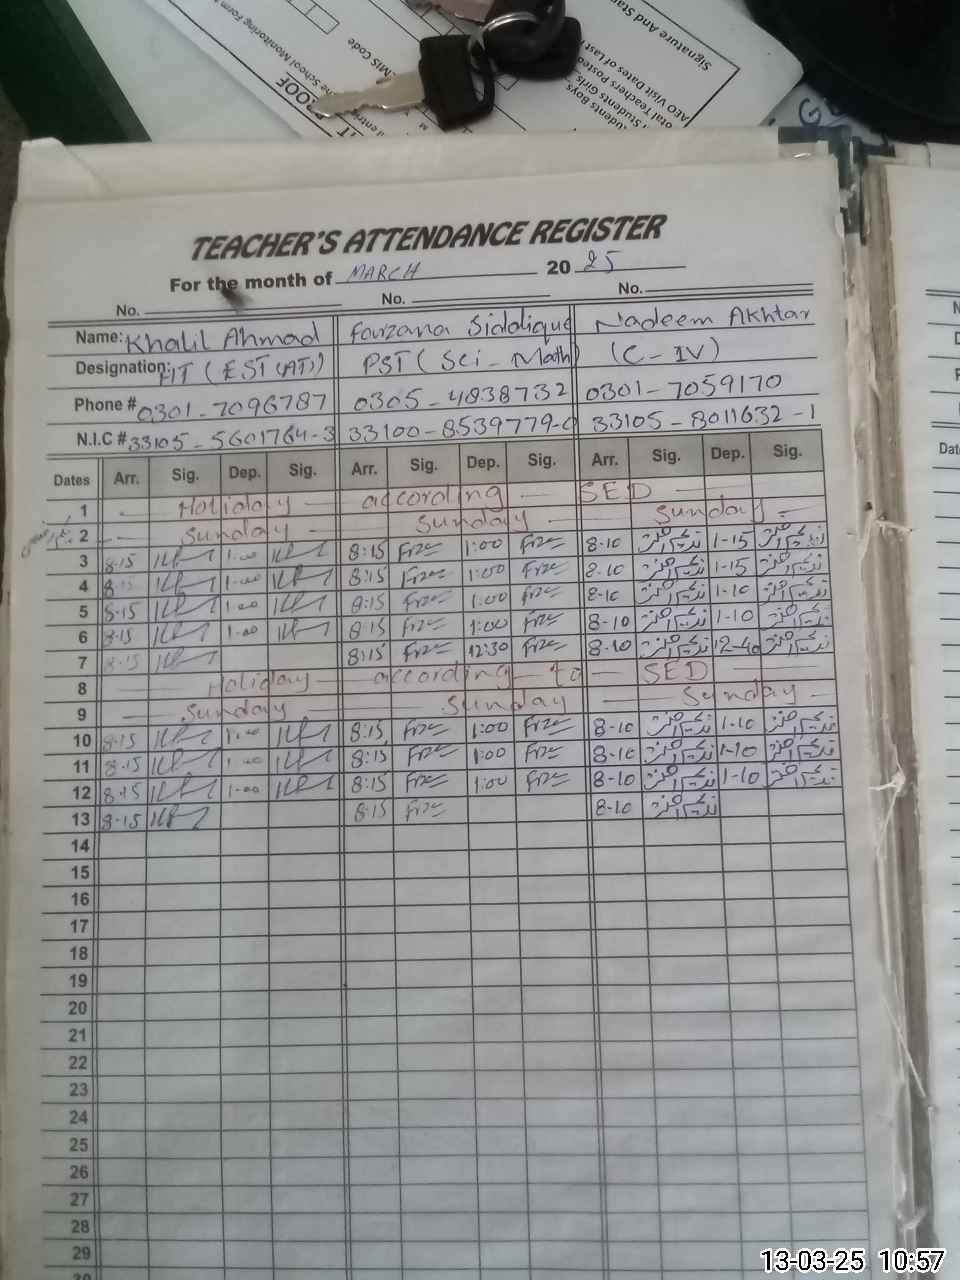 Signature And Sta
AEO Visit Dates of Last
Teachers Posted
otal Students Girls
udents Boys
EMIS Code
he School Monitoring Form
PROOF
TEACHER'S ATTENDANCE REGISTER
For the month of MARCH 20 25
No. No. No.
Name: Khalil Ahmad Farzana Siddique Nadeem Akhtar
Designation: HT (EST (AT)) PST (Sci - Math) (C-IV)
Phone # 0301-7096787 0305-4838732 0301-7059170
N.I.C # 33105-5601764-3 33100-8539779-0 33105-8011632-1
Dates Arr. Sig. Dep. Sig. Arr. Sig. Dep. Sig. Arr. Sig. Dep. Sig.
1 Holiday according SED
2 Sunday Sunday Sunday
3 8-15 1-00 8:15 1:00 8-10 1-15
4 8-15 1-00 8:15 1:00 8-10 1-15
5 8-15 1-00 8:15 1:00 8-10 1-10
6 8-15 1-00 8:15 1:00 8-10 1-10
7 8-15 8:15 12:30 8-10 12-40
8 Holiday according to SED
9 Sunday Sunday Sunday
10 8-15 1-00 8:15 1:00 8-10 1-10
11 8-15 1-00 8:15 1:00 8-10 1-10
12 8-15 1-00 8:15 1:00 8-10 1-10
13 8-15 8:15 8-10
14
15
16
17
18
19
20
21
22
23
24
25
26
27
28
29
30
Dat
13-03-25 10:57